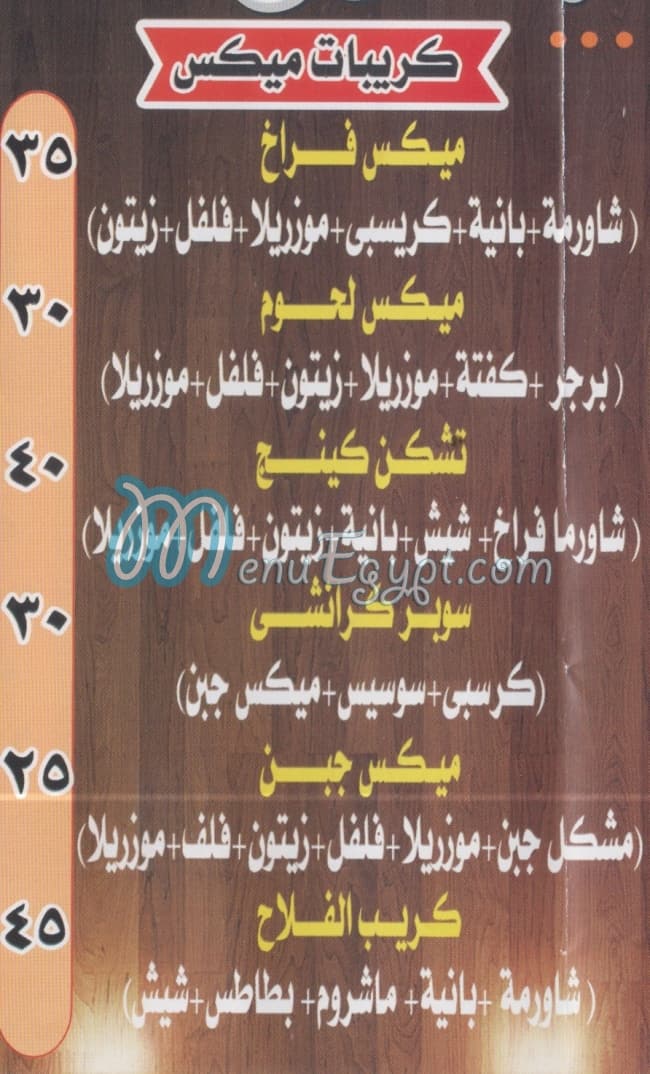 كريبات ميكس
ميكس فراخ
٣٥
(شاورمة+بانية+كريسبى+موزريلا+فلفل+زيتون)
ميكس لحوم
٣٠
(برجر+كفتة+موزريلا+زيتون+فلفل+موزريلا)
تشكن كينج
٤٠
(شاورما فراخ+ شيش+بانية+زيتون+فلفل+موزريلا)
MenuEgypt.com
سوبر كرانشى
٣٠
(كرسبى+سوسيس+ميكس جبن)
ميكس جبن
٢٥
(مشكل جبن+موزريلا+فلفل+زيتون+فلف+موزريلا)
كريب الفلاح
٤٥
(شاورمة +بانية+ ماشروم+ بطاطس+شيش)